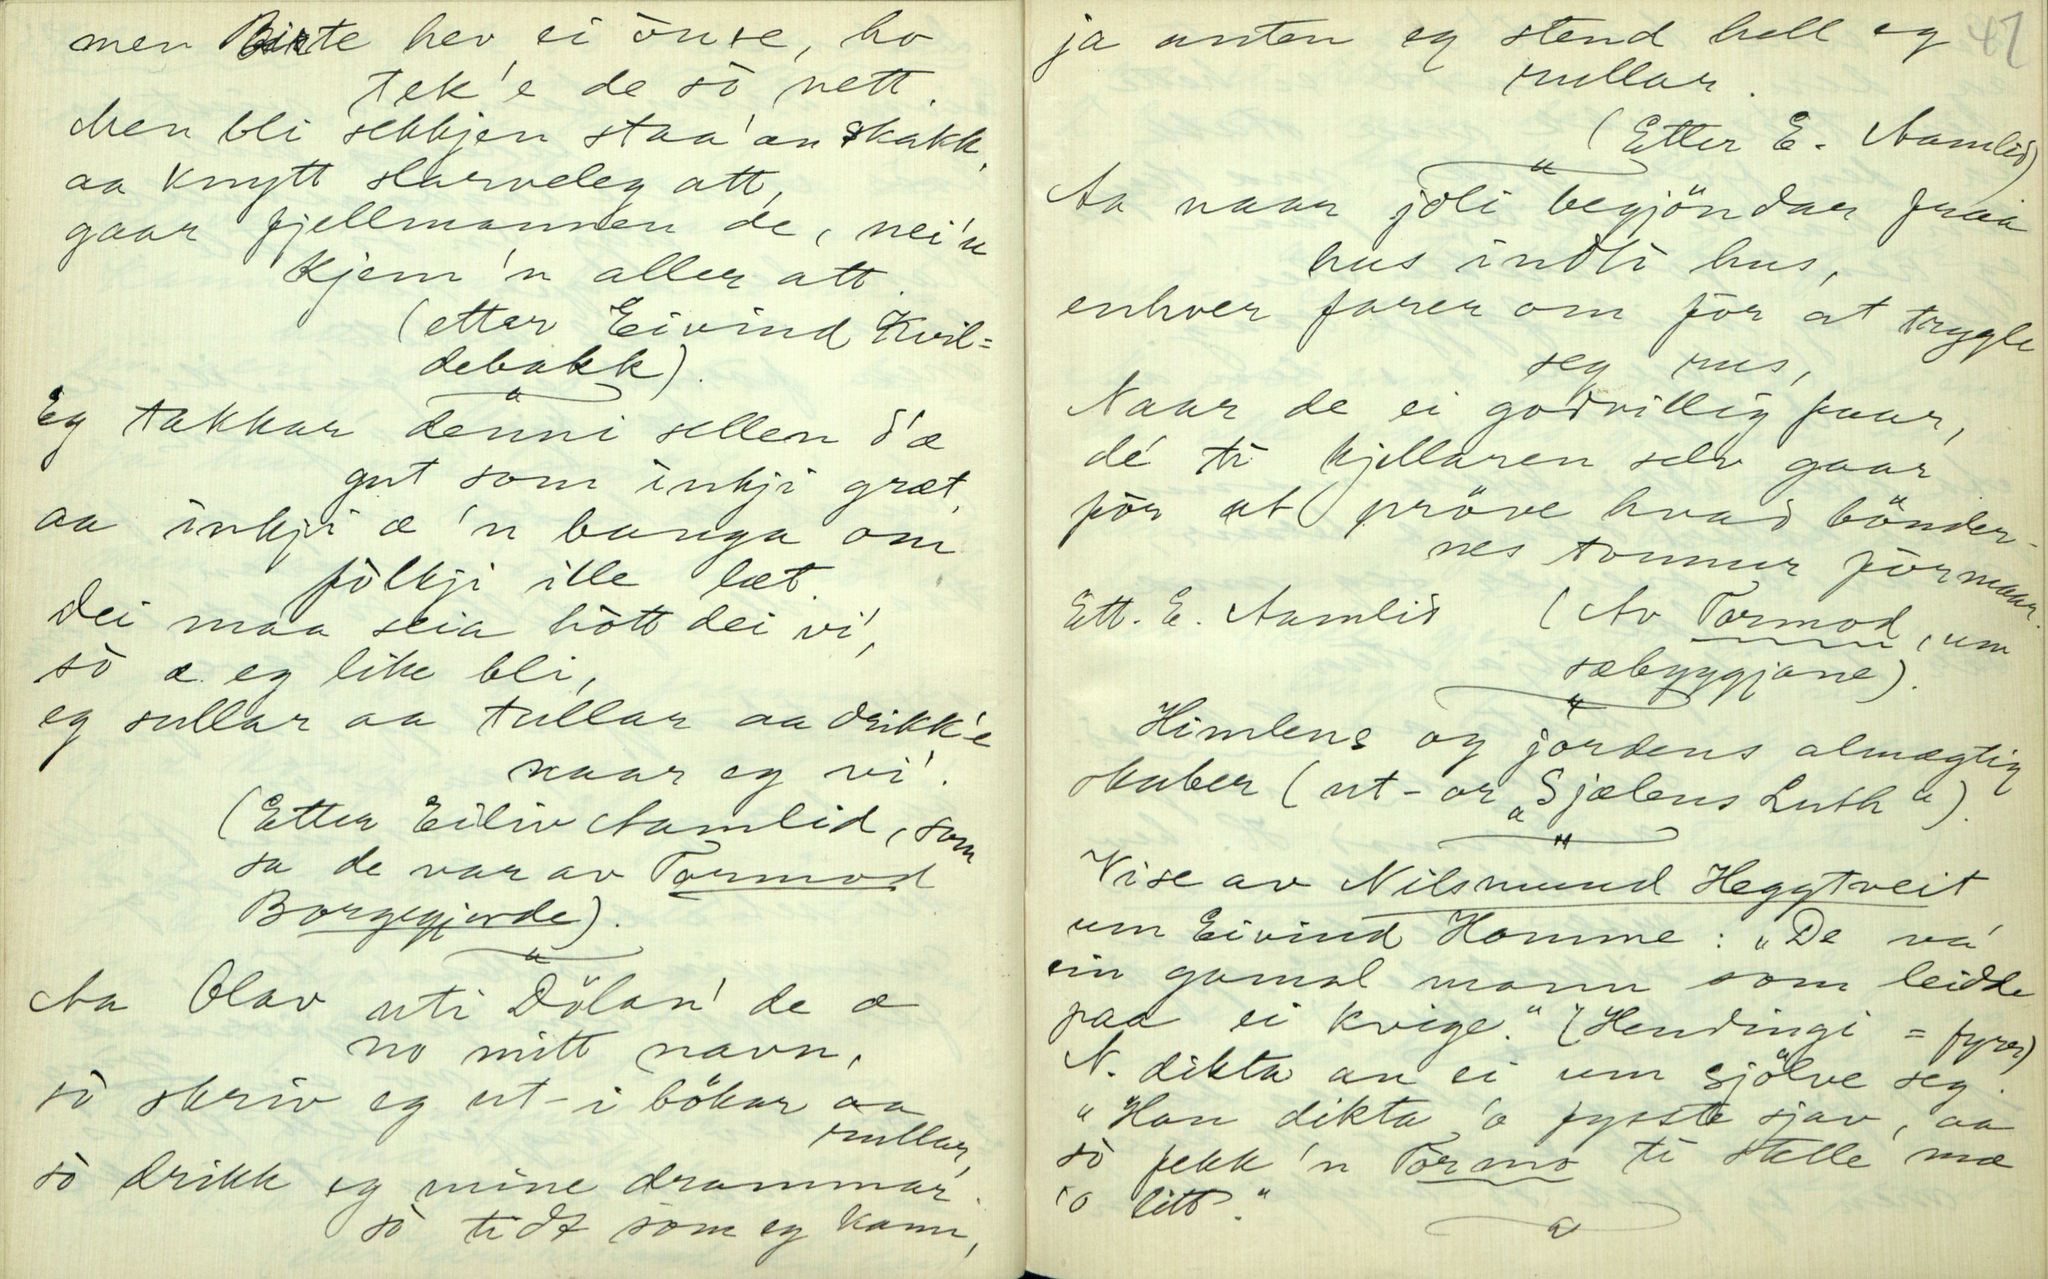 men Birte hev ei önse, ho
tek'e de sò nett.
Men bli sekkjen staa'an skakk,
aa knytt slarveleg att,
gaar fjellmannen de, nei'n
kjem'n aller att.
(etter Eivind Kvil=
debakk).
Eg takkar denni sellen d'æ
gut som inkji græt,
aa inkji æ'n banga om
fòlkji ille læt.
Dei maa seia hòtt dei vi',
sò æ eg like bli,
eg sullar aa tullar aa drikk'e
naar eg vi'.
(Etter Eiliv Aamlid, som
sa de var av Tormod
Borgegjerde).
Aa Olav uti Dölan' de æ
no mitt navn,
sò skriv eg ut-i bökar aa
rullar,
sò drikk eg mine drammar
sò tidt som eg kann,
47
ja anten eg stend hell eg
rullar.
(Etter E. Aamlid)
Aa naar joli begjöndar fraa
hus indti hus,
enhver farer om för at trygle
seg rus,
Naar de ei godvillig faar,
dé ti kjellaren selv gaar
fòr at pröve hvad bönder-
nes tonnur fòrmaar.
Ett. E. Aamlid (Av Tormod, um
sæbyggjane).
Himlens og jordens almægtig
skaber (ut-or „Sjælens Luth“).
Vise av Nilsmund Heggtveit
um Eivind Homme: „De va'
ein gamal mann som leidde
paa ei kvige.“ (Hendingi = fyrr)
N. dikta an ei um sjölve seg.
„Han dikta 'o fysste sjav, aa
sò fekk 'n Tormo ti stelle mæ
'o litt.“